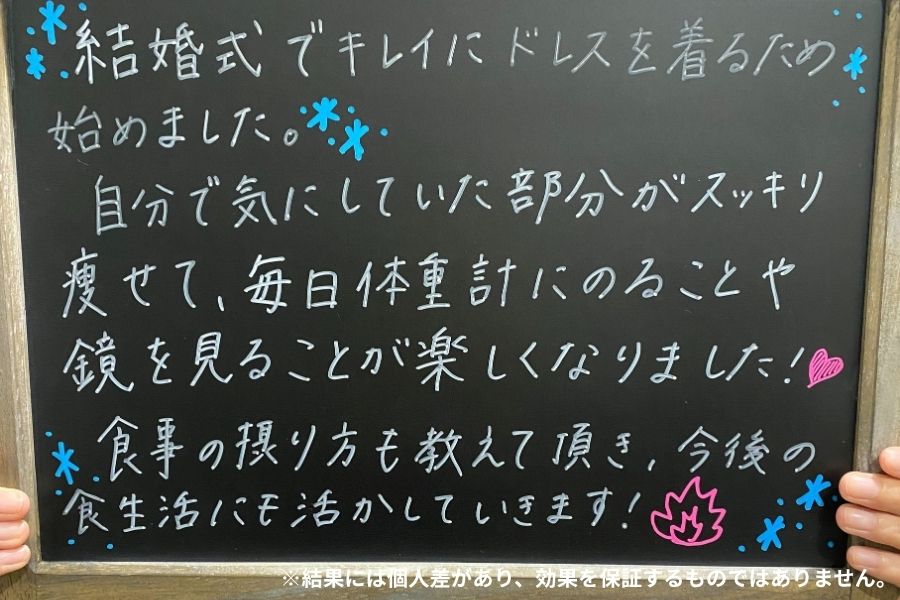 結婚式でキレイにドレスを着るため
始めました。
自分で気にしていた部分がスッキリ
痩せて、毎日体重計にのることや
鏡を見ることが楽しくなりました!
食事の摂り方も教えて頂き、今後の
食生活にも活かしていきます!
※結果には個人差があり、効果を保証するものではありません。